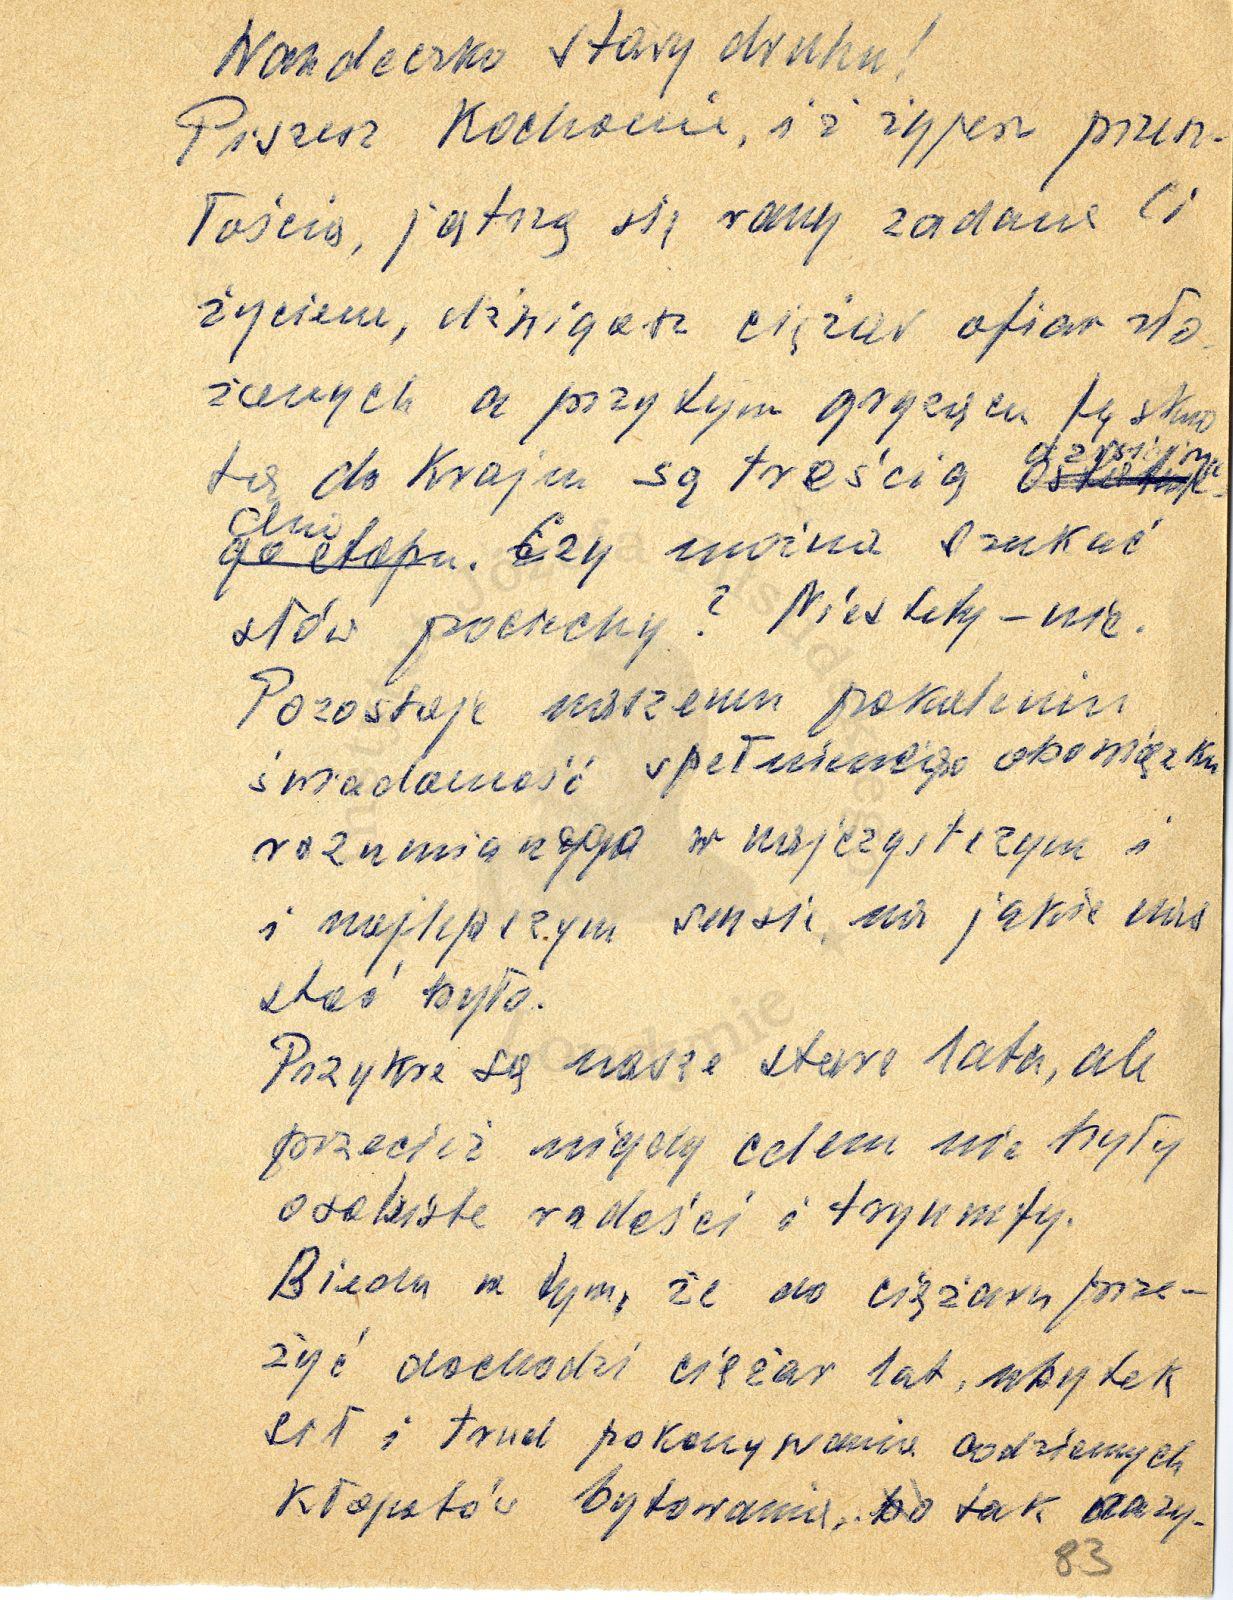 Wandeczko stary druhu!
Piszesz Kochanie, iż żyjesz przesz-
łością, jątrzą się rany zadane Ci
życiem, dźwigasz ciężar ofiar zło-
żonych a przytym gryząca tęskno
ta do Kraju są treścią ostatnie-
go etapu. Czy można szukać
słów pociechy? Niestety – nie.
Pozostaje naszemu pokoleniu
świadomość spełnionego obowiązku
rozumianego w najczystszym i
i najlepszym sensie, na jakie nas
stać było.
Przykre są nasze stare lata, ale
przecież nigdy celem nie były
osobiste radości i tryumfy.
Bieda w tym, że do ciężaru prze-
żyć dochodzi ciężar lat, ubytek
sił i trud pokonywania codziennych
kłopotów bytowania, bo tak nazy-
83
Instytut Józefa Piłsudskiego
w Londynie